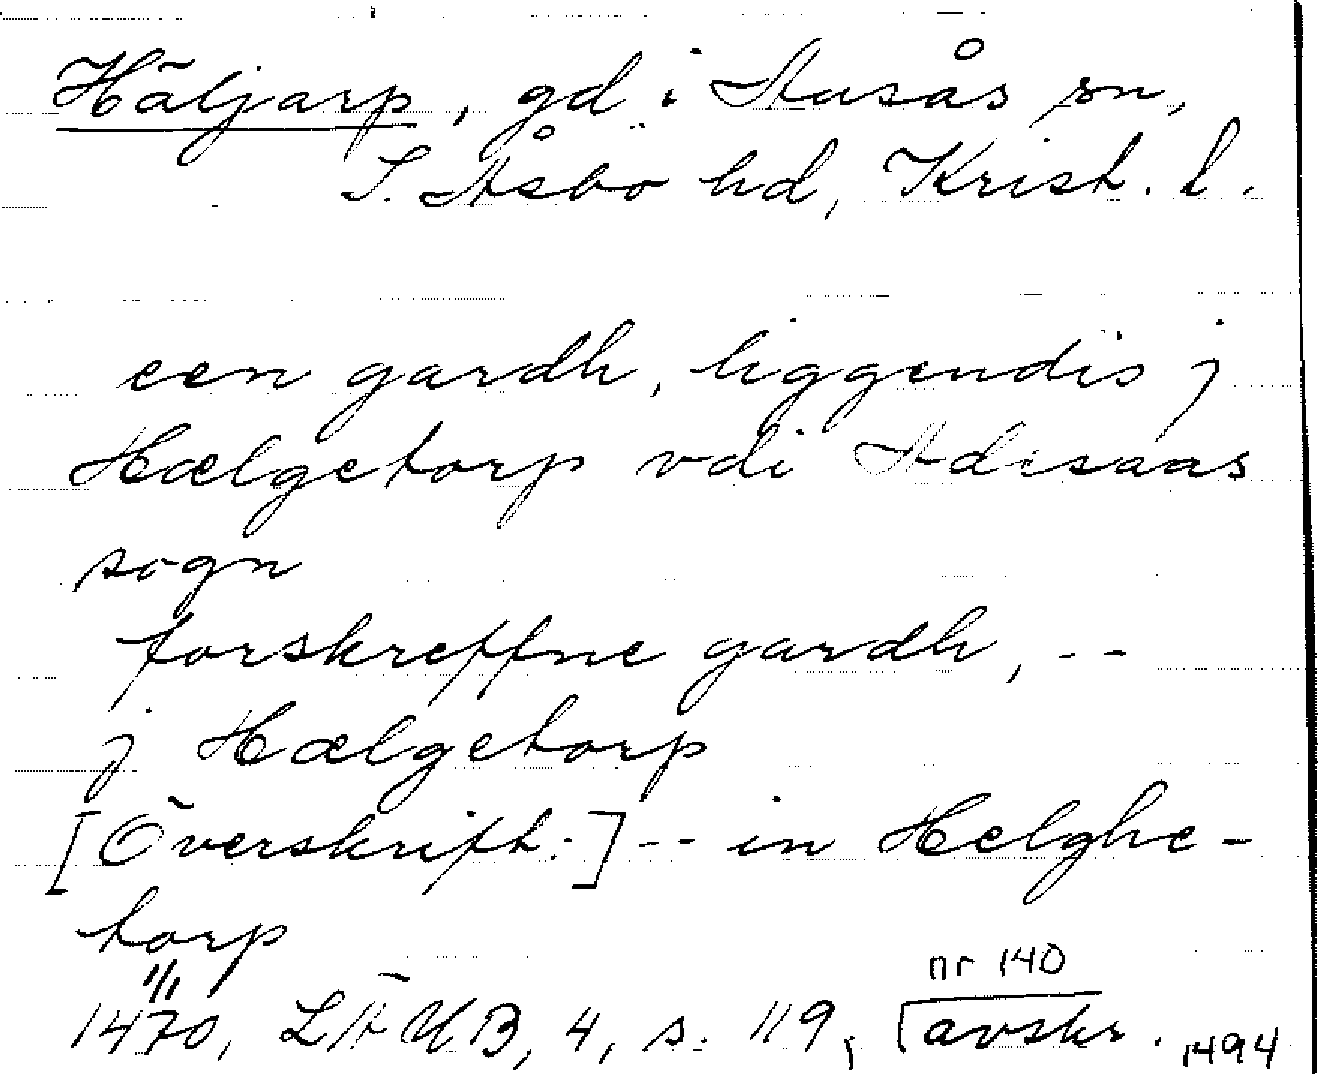 Häljarp, gd i Ausås sn,
S. Åsbo hd, Krist. l.
een gardh, liggendis j
Hælgetorp vdi Adisaas
sogn
forskreffne gardh, --
j Hælgetorp
[Överskift:] -- in Helghe-
torp
1/1
nr 140
1470, LÄUB, 4, s. 119, avskr. 1494